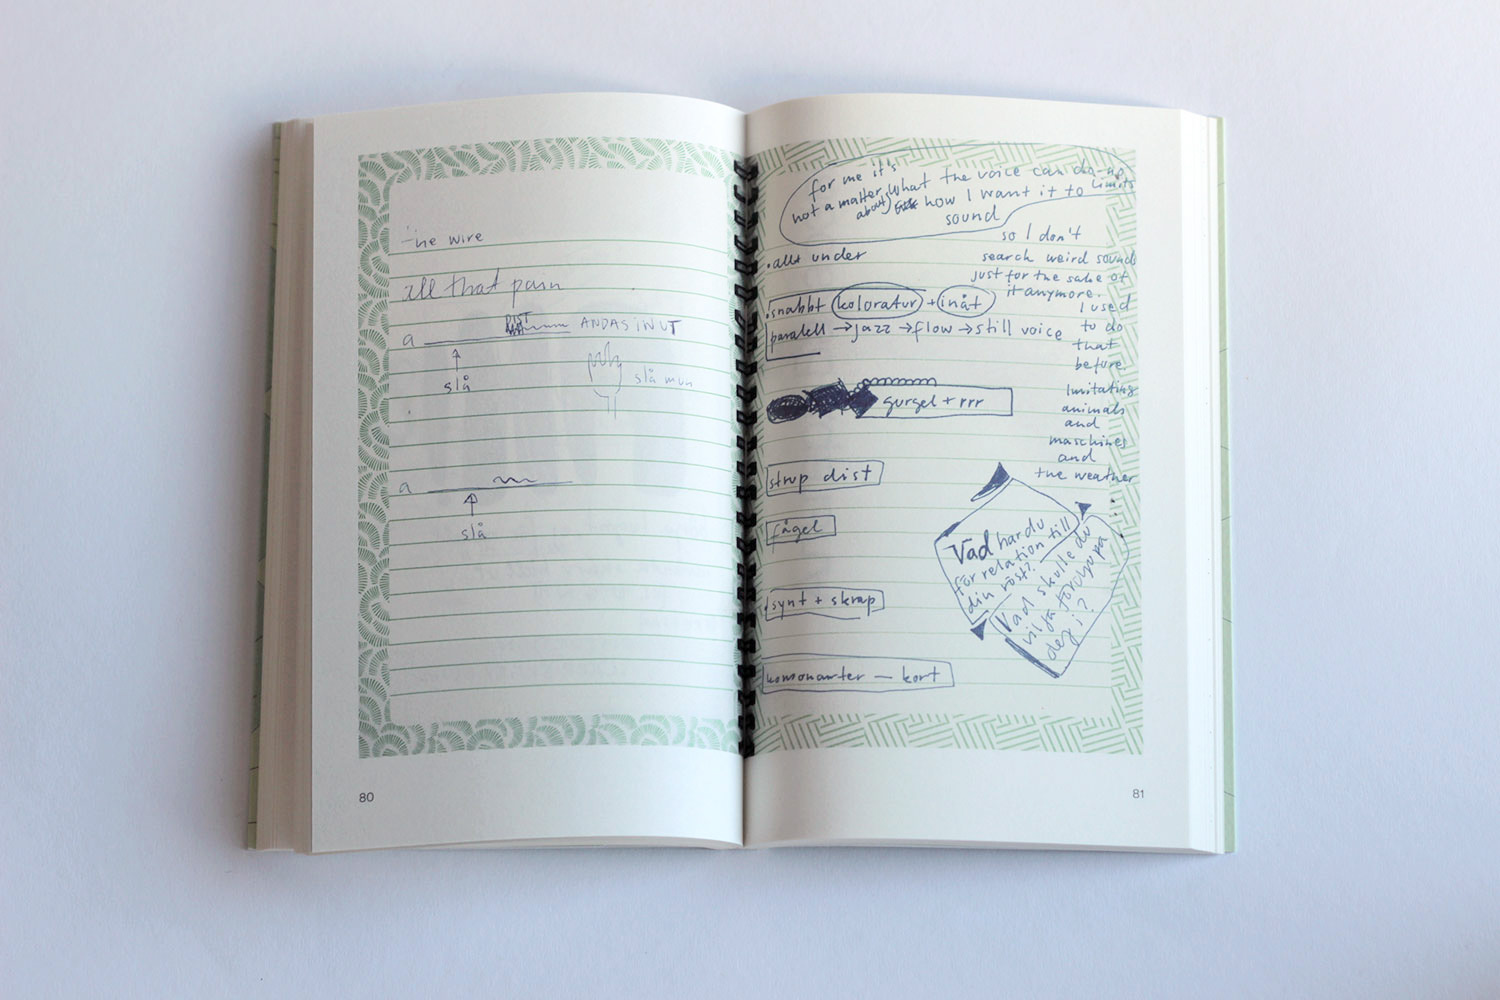 the wire
all that pain
a DIST ANDAS IN UT
slå
slå mun
a
slå
80
for me it's
not a matter what the voice can do - no limits
about how I want it to
sound
so I don't
search weird sounds
just for the sake of
it anymore.
I used
to do
that
before.
Imitating
animals
and
maschines
and
the weather
• allt under
• snabbt koloratur + inåt
paralell → jazz → flow → still voice
gurgel + rrr
strup dist
fågel
synt + skrap
konsonanter — kort
Vad har du
för relation till
din röst?
Vad skulle du
vilja fördjupa
dig i?
81